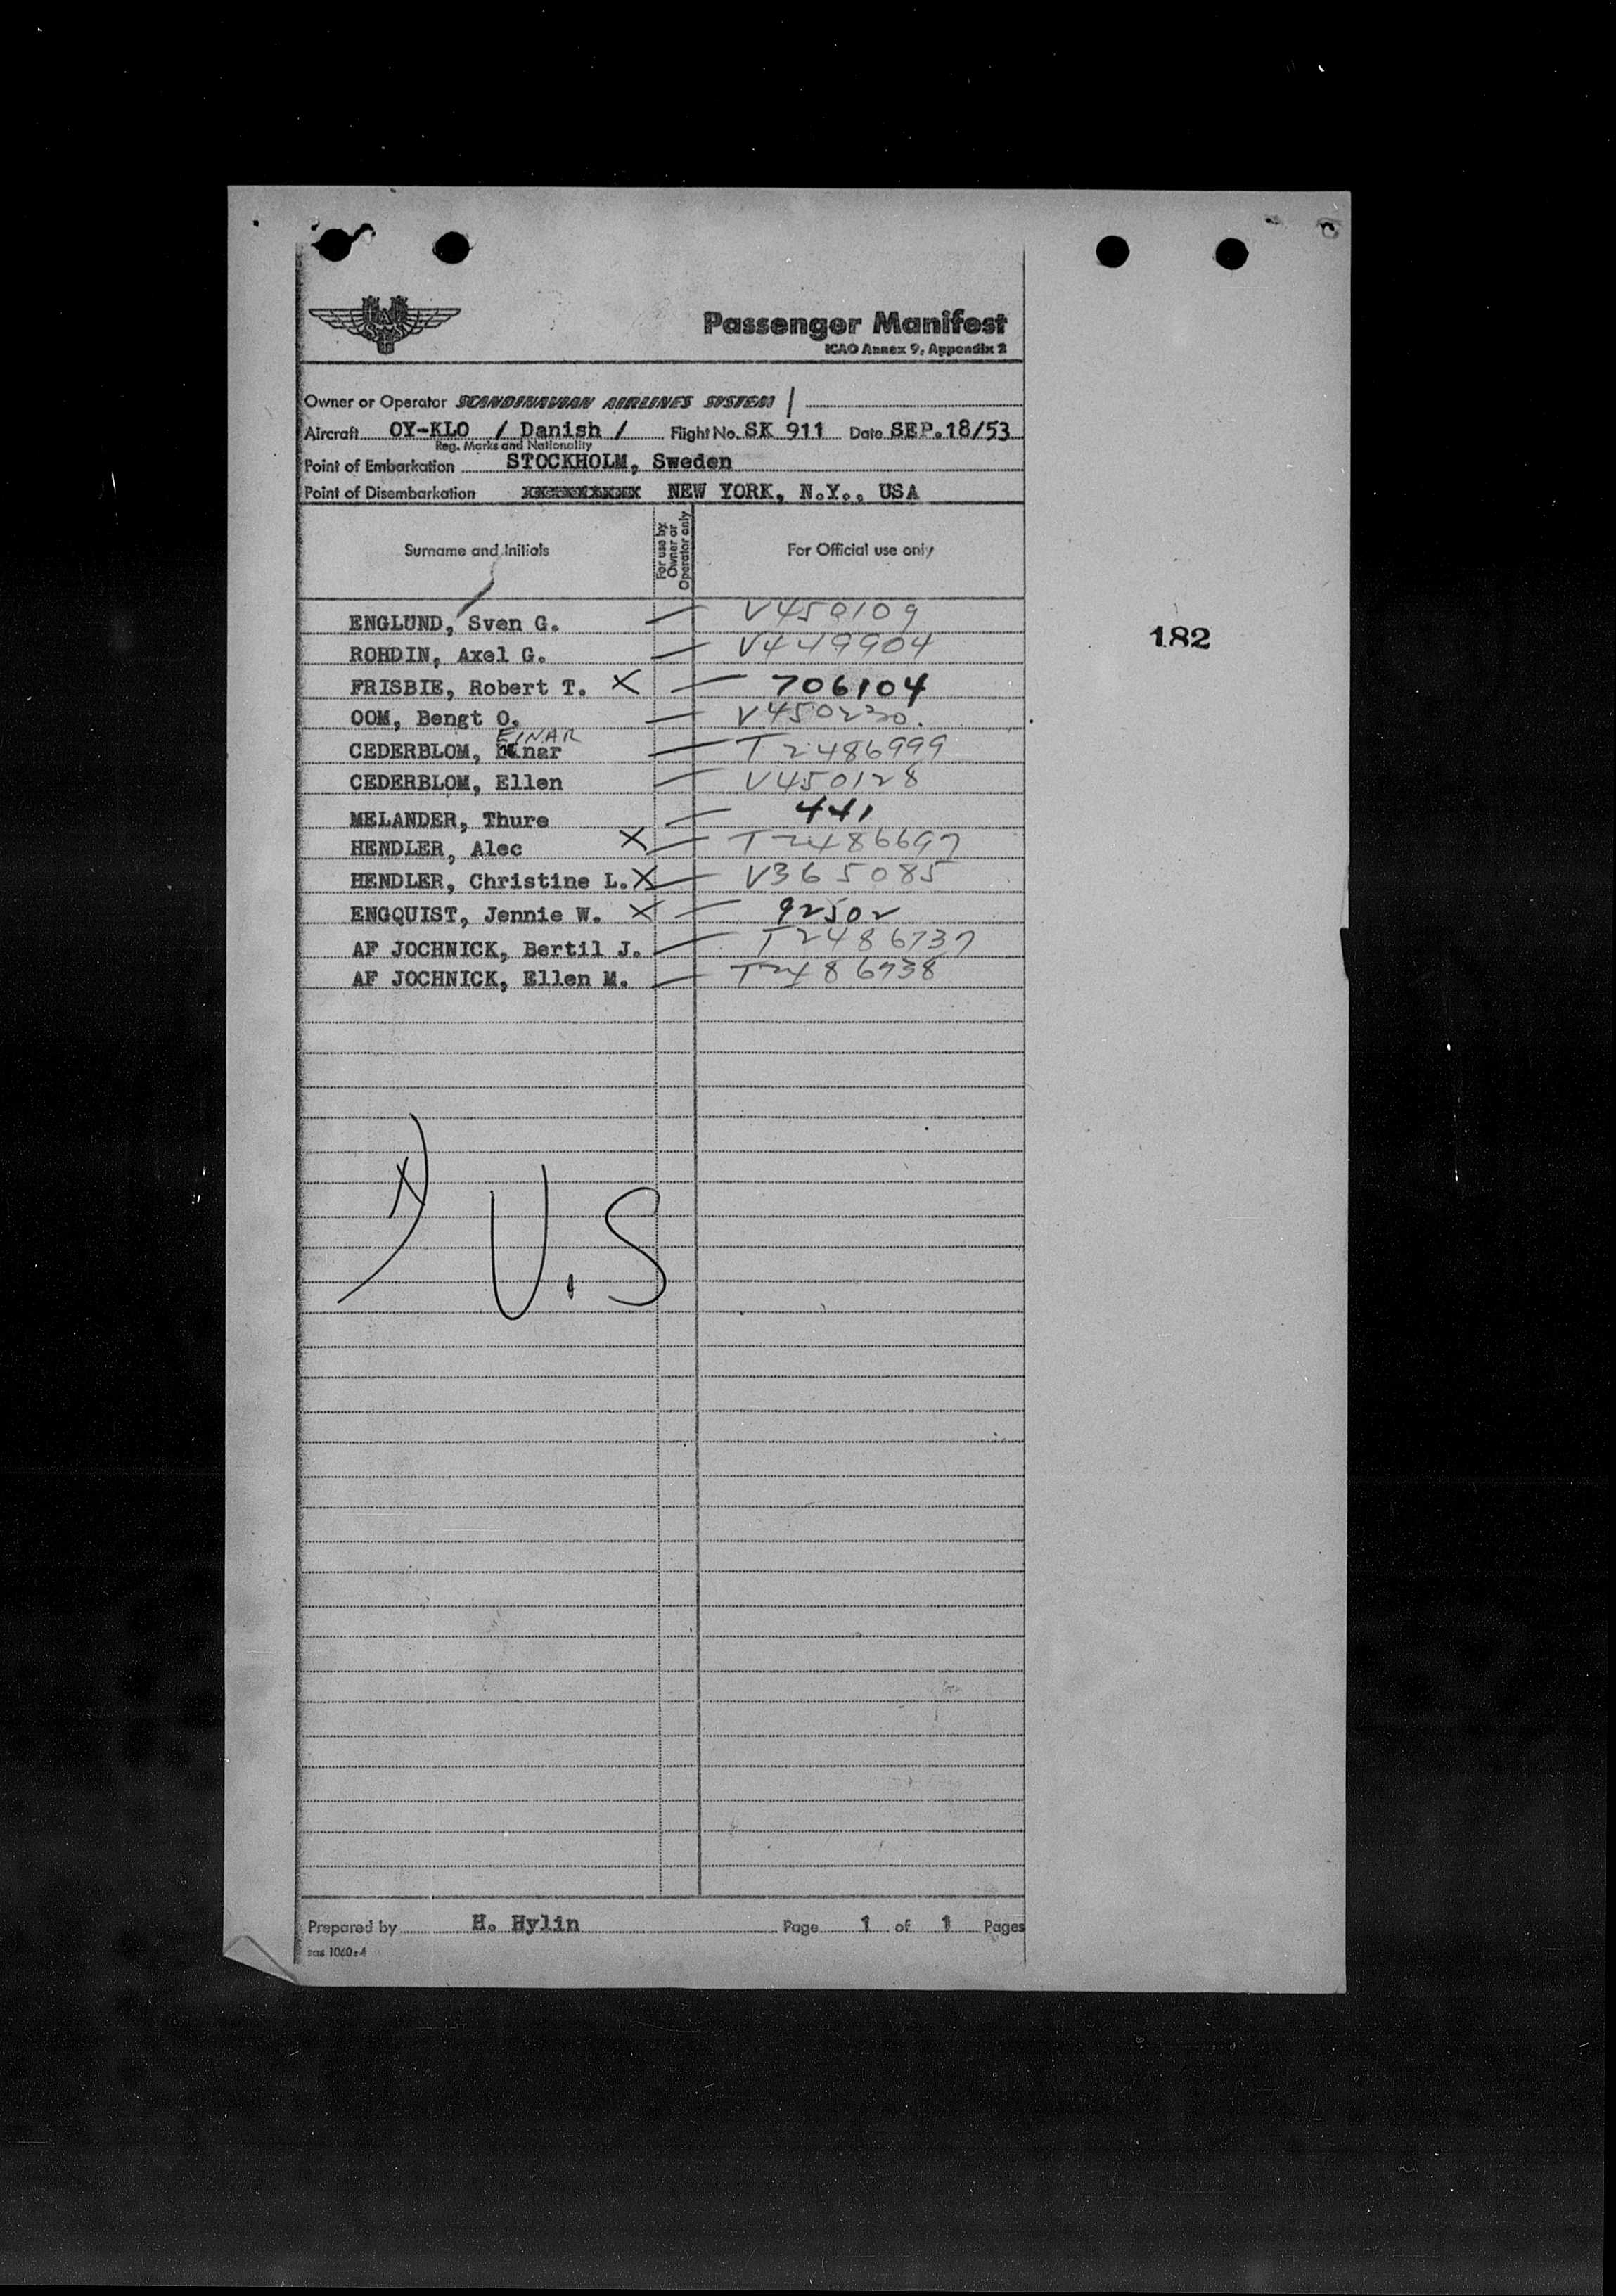 SAS
Passenger Manifest
ICAO Annex 9, Appendix 2
Owner or Operator SCANDINAVIAN AIRLINES SYSTEM /
Aircraft OY-KLO / Danish / Flight No. SK 911 Date SEP.18/53
Reg. Marks and Nationality
Point of Embarkation STOCKHOLM, Sweden
Point of Disembarkation NEW YORK, N.Y., USA
Surname and Initials For use by Owner or Operator only For Official use only
ENGLUND, Sven G. — V450109
182
ROHDIN, Axel G. — V449904
FRISBIE, Robert T. X — 706104
OOM, Bengt O. — V450230.
EINAR
CEDERBLOM, Einar — T2486999
CEDERBLOM, Ellen — V450128
MELANDER, Thure — 441
HENDLER, Alec X — T2486697
HENDLER, Christine L. X — V365085
ENGQUIST, Jennie W. X — 92502
AF JOCHNICK, Bertil J. — T2486737
AF JOCHNICK, Ellen M. — T2486738
X) U.S
Prepared by H. Hylin Page 1 of 1 Pages
sas 1060:4